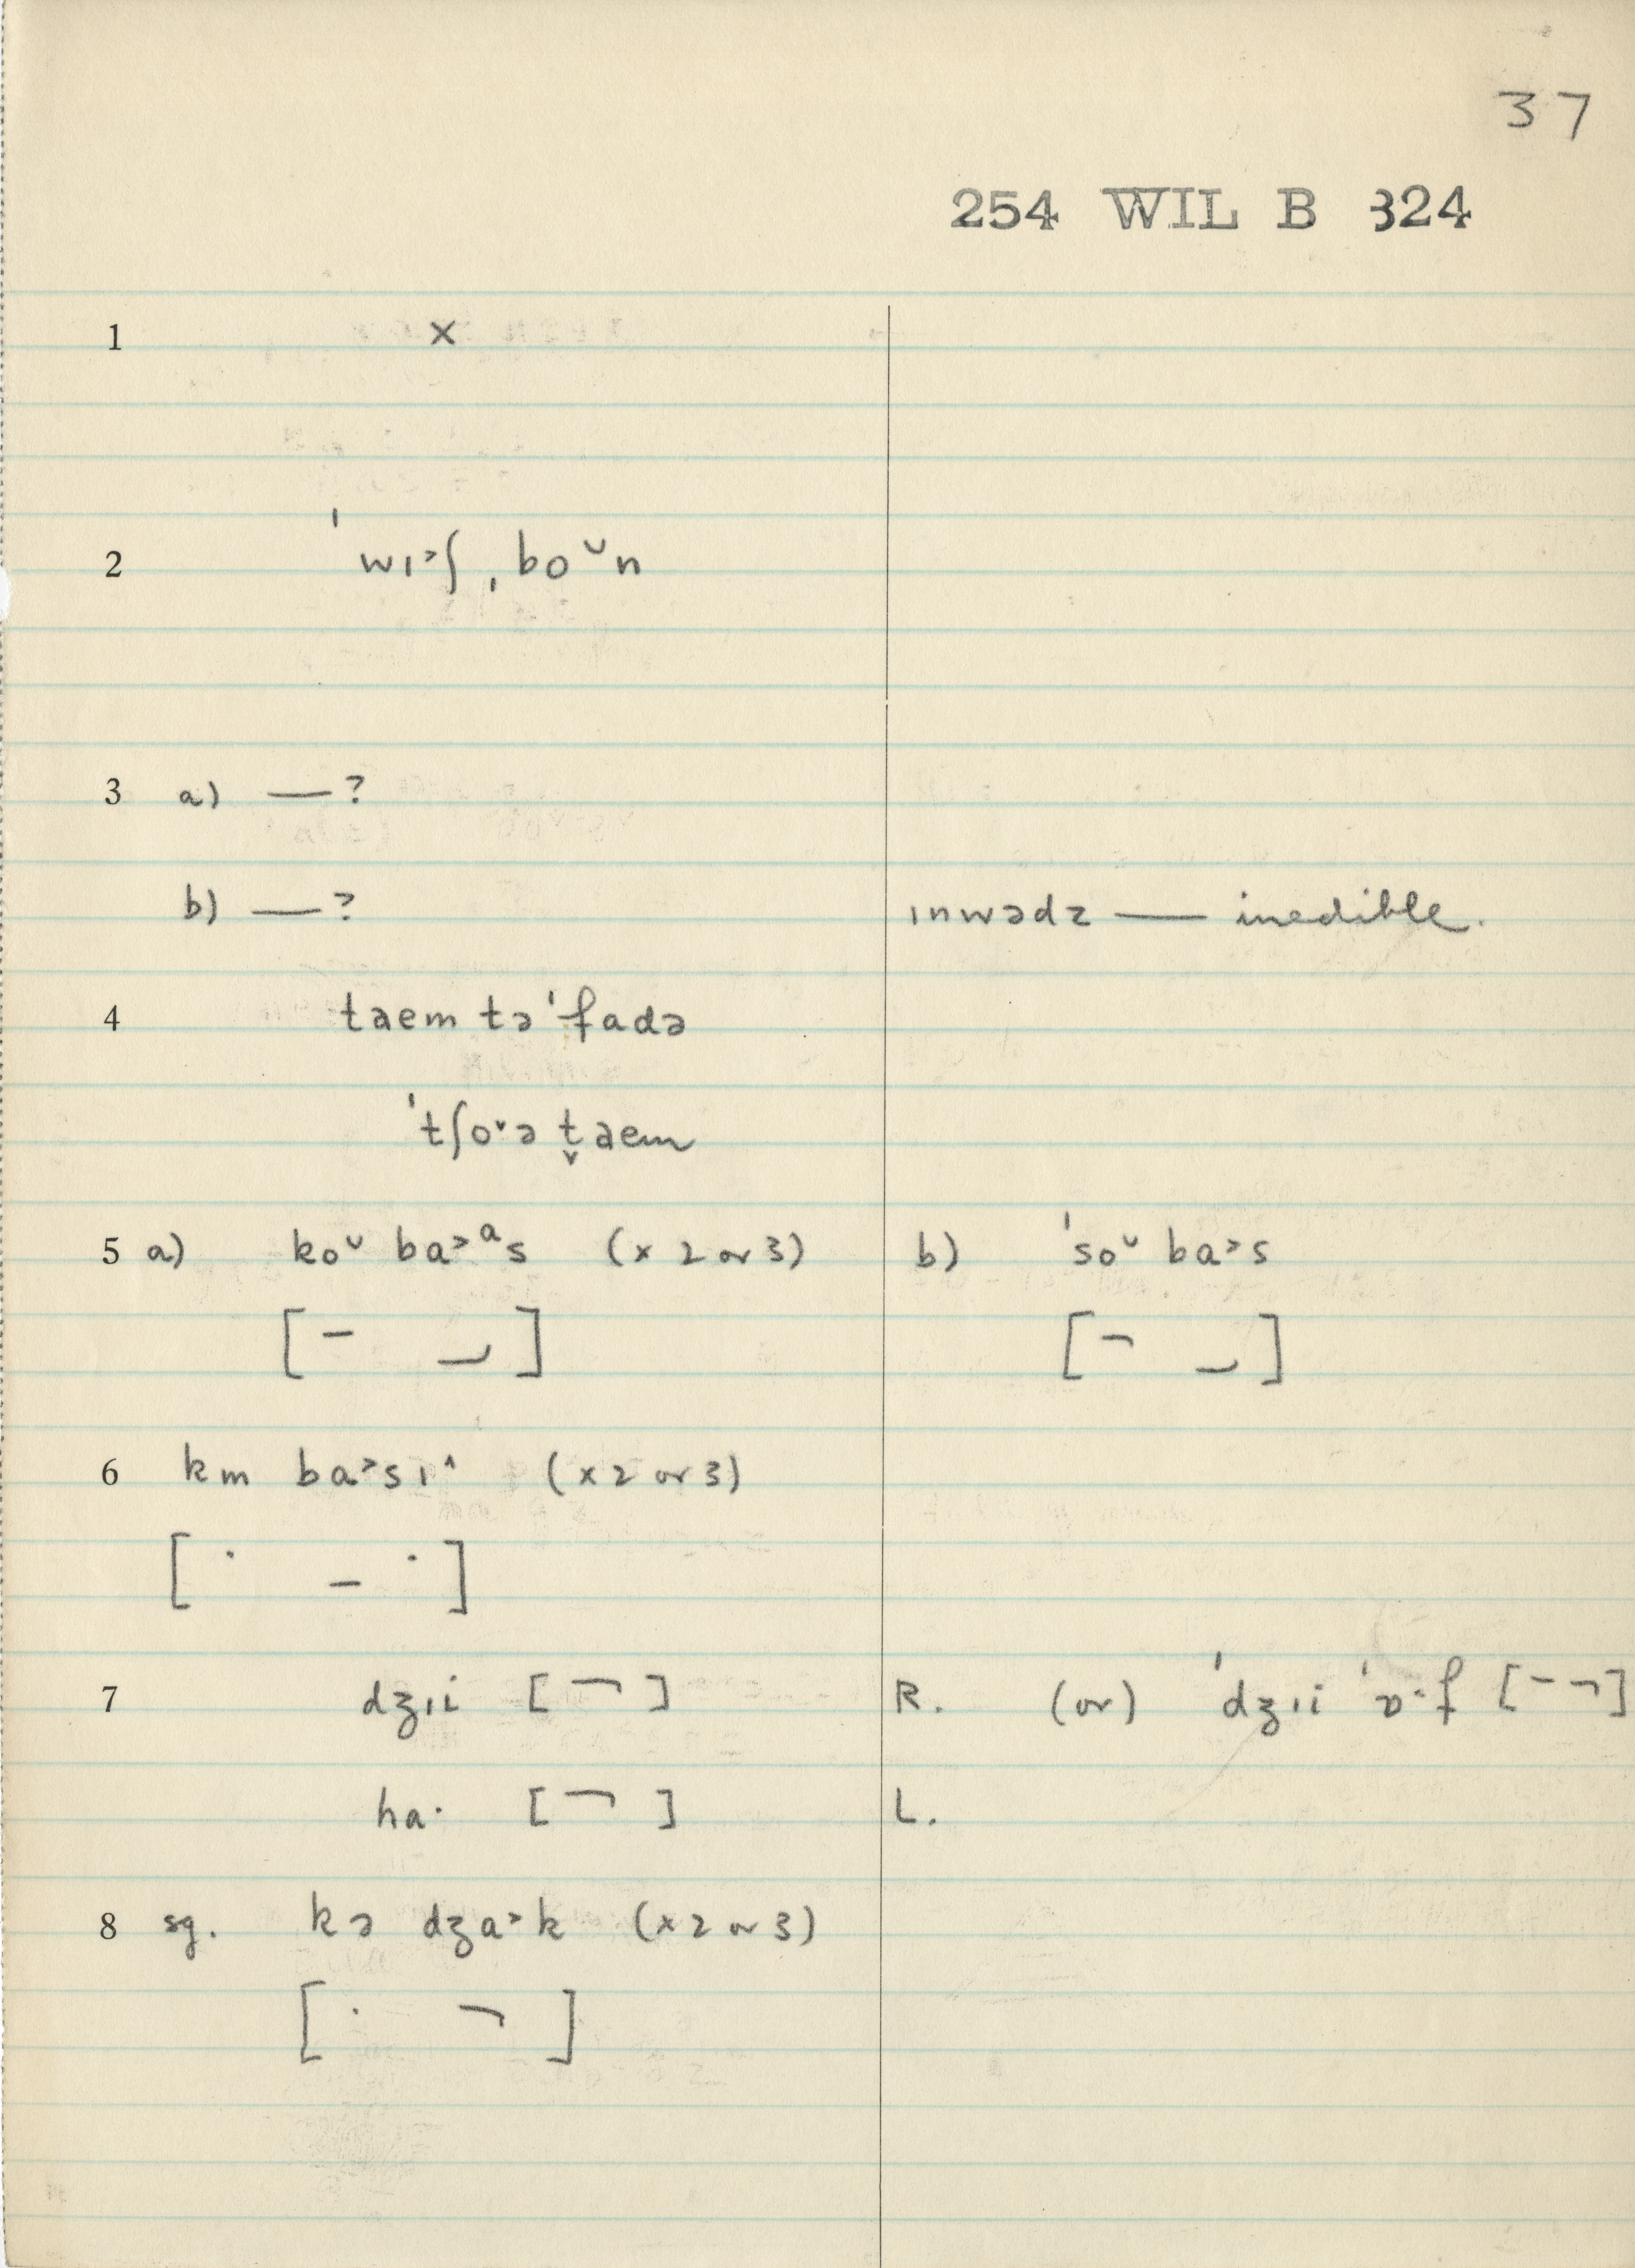 37
254 WIL B 324
1 ×
2 ˈwɪ˃ʃˌbo˅n
3 a) — ?
b) — ? ɪnwədz — inedible.
4 taem təˈfadə
ˈtʃo˅ə t̬aem
5 a) ko˅ ba˃ᵃs (× 2 or 3) b) ˈso˅ ba˃s
[– ⏝] [¬ ⏝]
6 km ba˃sɪ˄ (× 2 or 3)
[˙ – ˙]
7 dʒɪi [¬] R. (or) ˈdʒɪi ˈɒ·f [– ¬]
ha· [¬] L.
8 sg. kə dʒa˃k (× 2 or 3)
[· ¬]